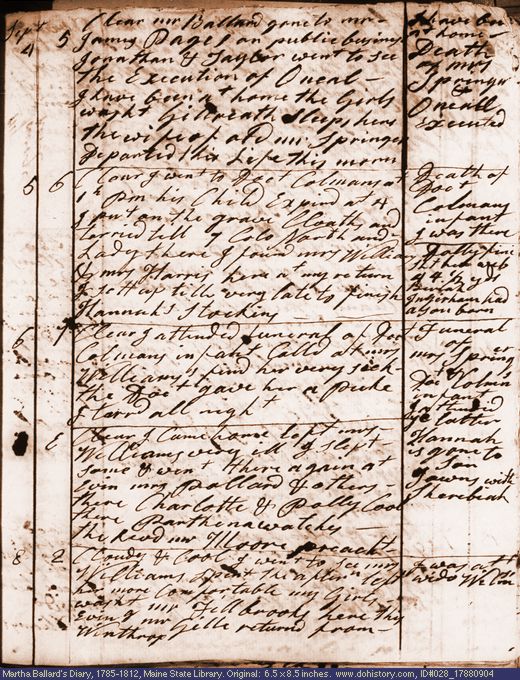 Sept
4 5 Clear mr Ballard gone to mr
James Pages on public business
Jonathan & Taylor went to see
the Execution of Oneal
I have been at home the Girls
washt Gilbreath sleeps here
the wife of old mr Springer
Departed this Life this morn
I have been
at home
Death
of mrs
Springer
& Oneall
Executed
5 6 Clear I went to Doct Colmans at
1 h pm his Child Expird at 4
I put on the grave Cloaths and
tarried till
Lady there I found mrs Williams
& mrs Harris here at my return
I sett up till very late to finish
Hannahs Stockins
Death of
Doct
Colmans
infant
I was there
had
a son born
6 7 Clear I attended funeral of Doct
Colmans infant Calld at mrs
Williams find her very sick
the Doct gave her a Puke
I tarried all night
Funeral
of
mrs Springer
&
Doc Colmn
infant
I attended
ye latter
Hannah
is gone to
Son
Towns with
E Clear I Came home left mrs
Williams very ill I slept
some & went there again at
Evn mrs Pollard & others
there Charlotte & Polly Cool
there Parthena watches
the Revd mr Moore preacht
8 2 Cloudy & Cool I went to see mrs
Williams Spent the aftern left
her more Comfortable my Girls
washt
Evng mr Fillbrooks here
Winthrop returned from
I was att
wido Wilms
Martha Ballard's Diary, 1785-1812, Maine State Library. Original: 6.5 x 8.5 inches. www.dohistory.com, ID#028_17880904